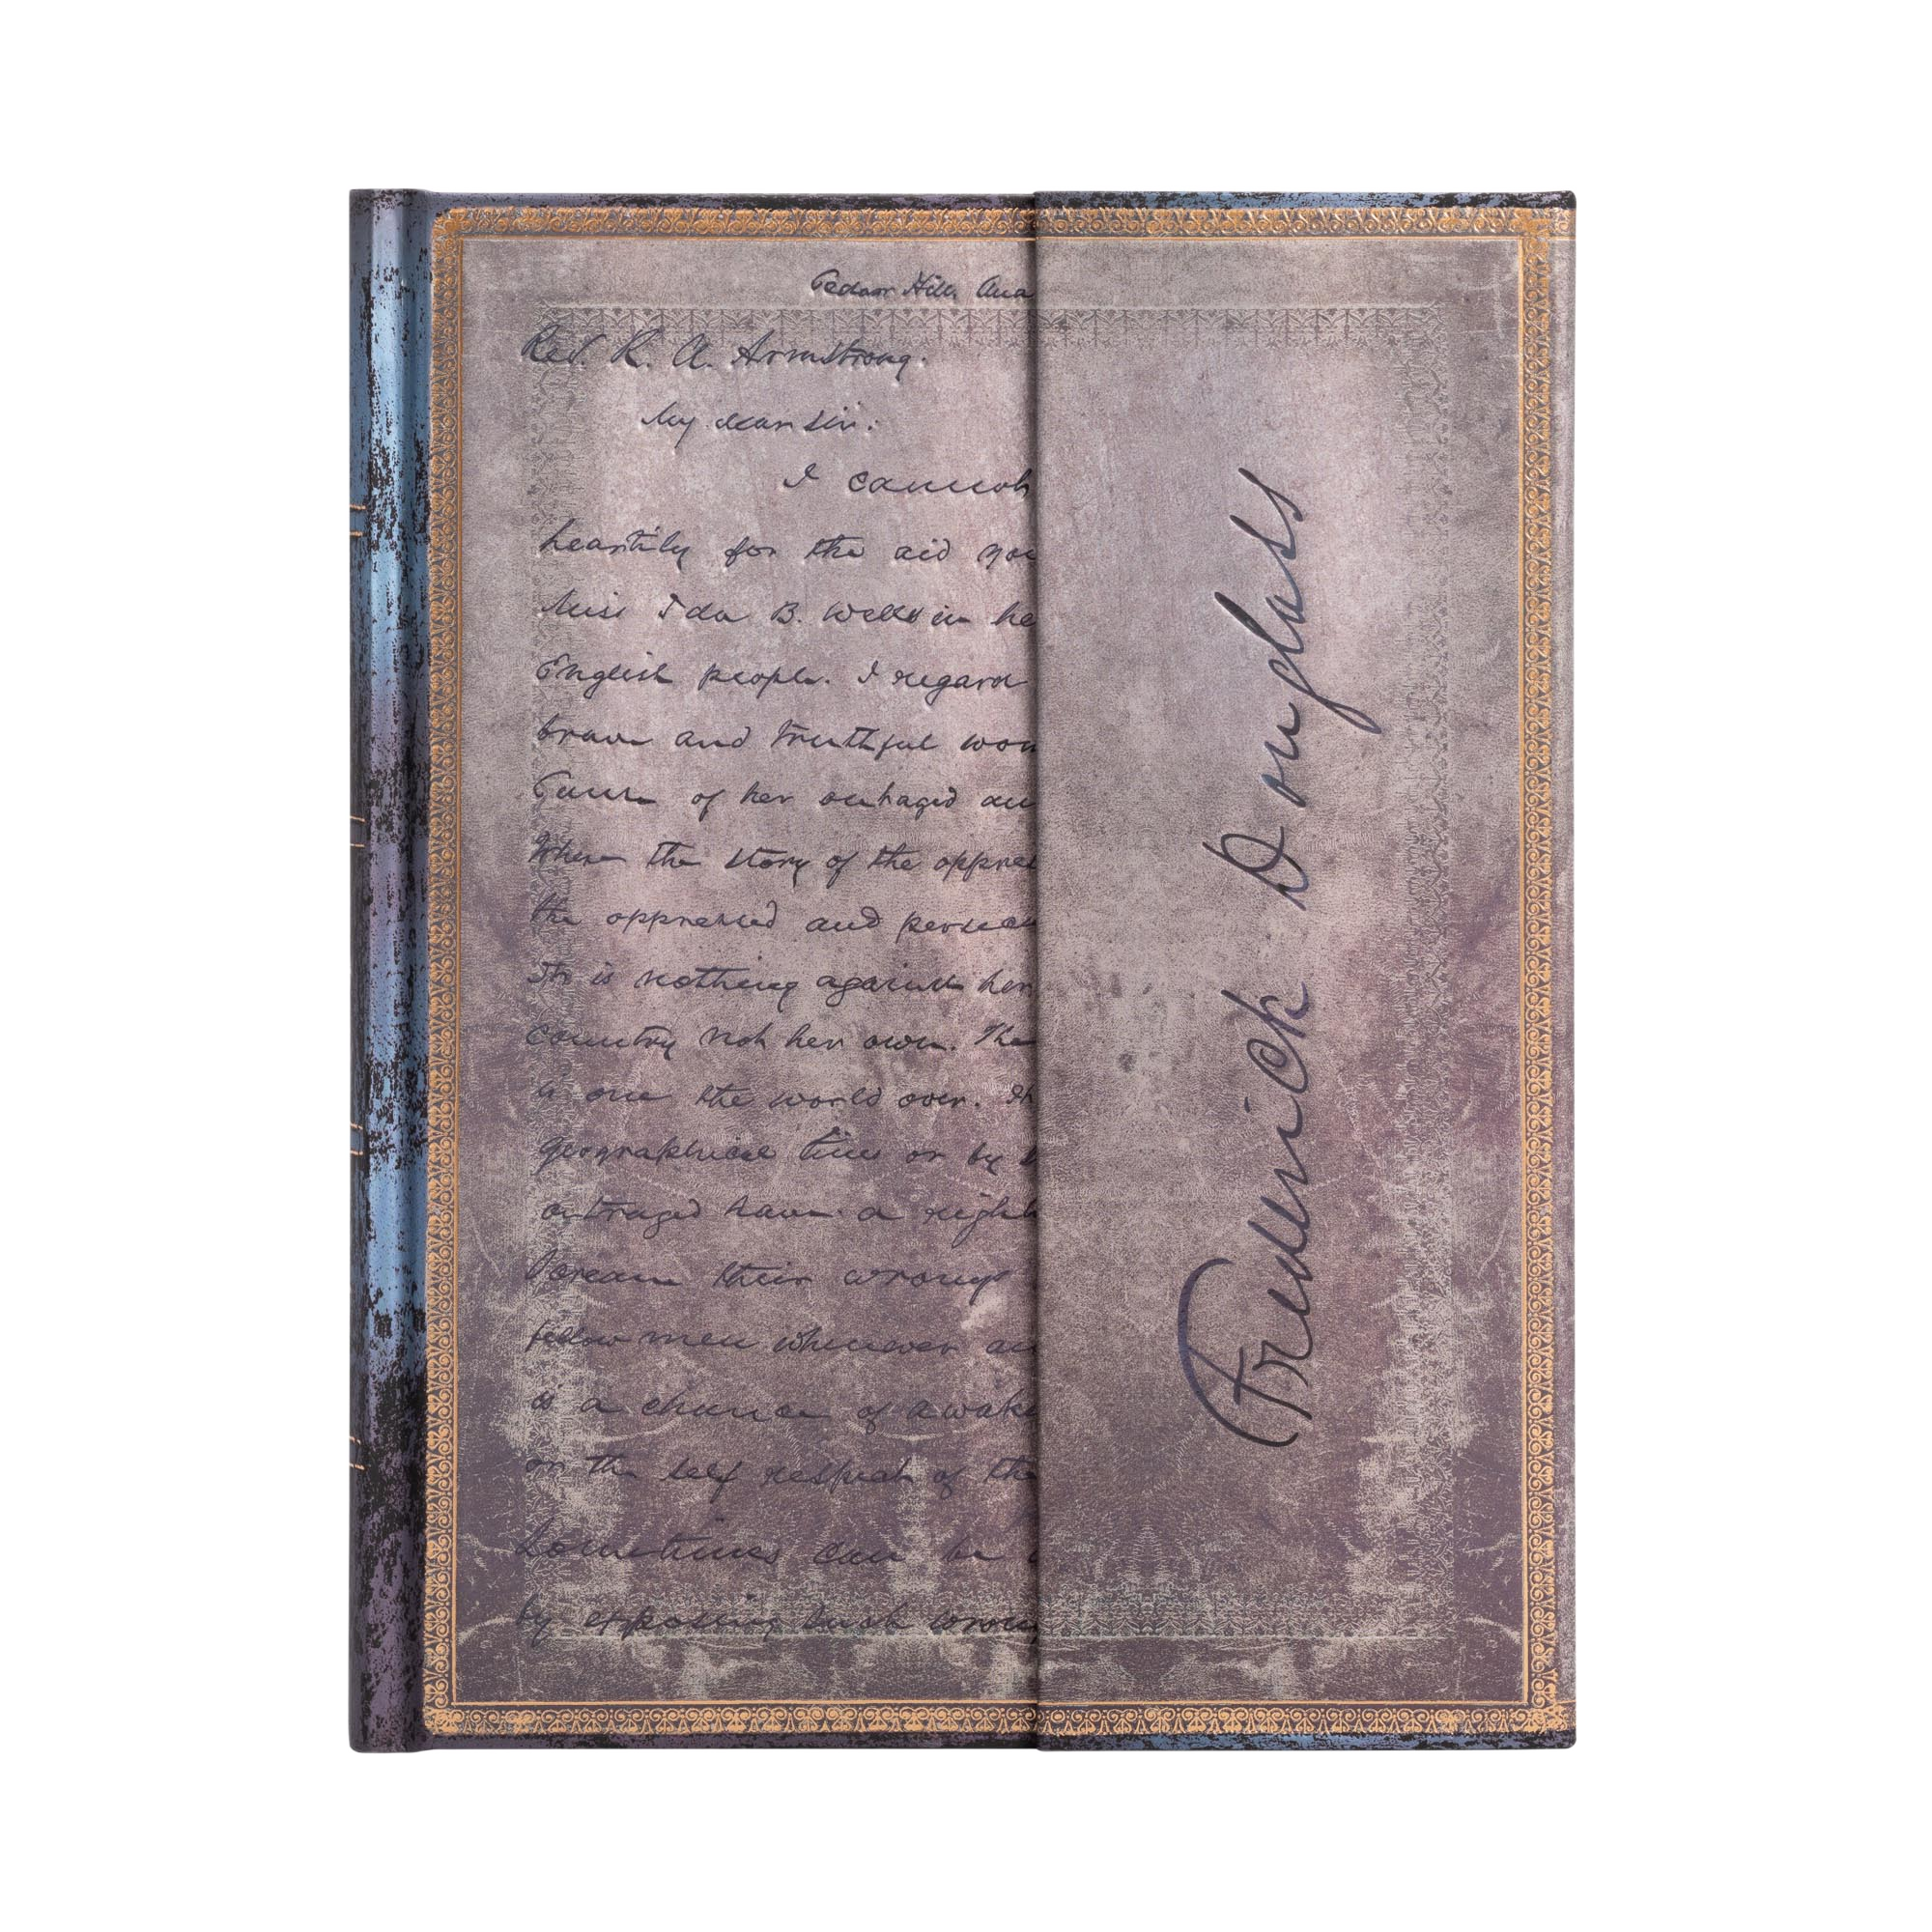 Cedar Hill, Ana
Rev. R. A. Armstrong.
My dear sir:
I cannot
heartily for the aid you
Miss Ida B. Wells in he
English people. I regard
brave and truthful wom
Cause of her outraged an
Where the story of the oppres
the oppressed and persecu
It is nothing against her
country not her own. The
is one the world over. It
geographical lines or by
outraged have a right
their wrongs
fellow men whenever an
is a chance of awake
or the self respect of the
Sometimes can be
by exposing such wrong
Frederick Douglass